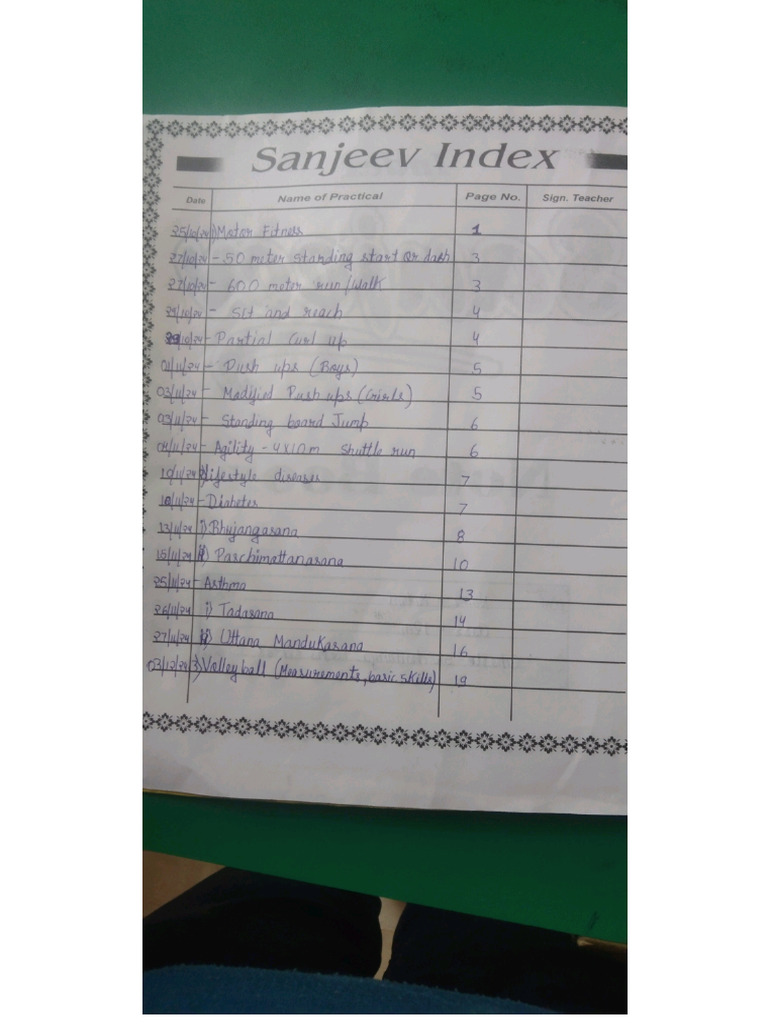 Sanjeev Index
Date Name of Practical Page No. Sign. Teacher
25/10/24 1) Motor Fitness 1
27/10/24 - 50 meter standing start Or dash 3
27/10/24 - 600 meter run/walk 3
29/10/24 - Sit and reach 4
29/10/24 - Partial Curl up 4
01/11/24 - Push ups (Boys) 5
03/11/24 - Modified Push ups (Girls) 5
03/11/24 - Standing board Jump 6
04/11/24 - Agility - 4x10m shuttle run 6
10/11/24 2) lifestyle diseases 7
10/11/24 - Diabetes 7
13/11/24 i) Bhujangasana 8
15/11/24 ii) Paschimattanasana 10
25/11/24 - Asthma 13
26/11/24 i) Tadasana 14
27/11/24 ii) Uttana Mandukasana 16
03/12/24 3) Volleyball (Measurements, basic skills) 19